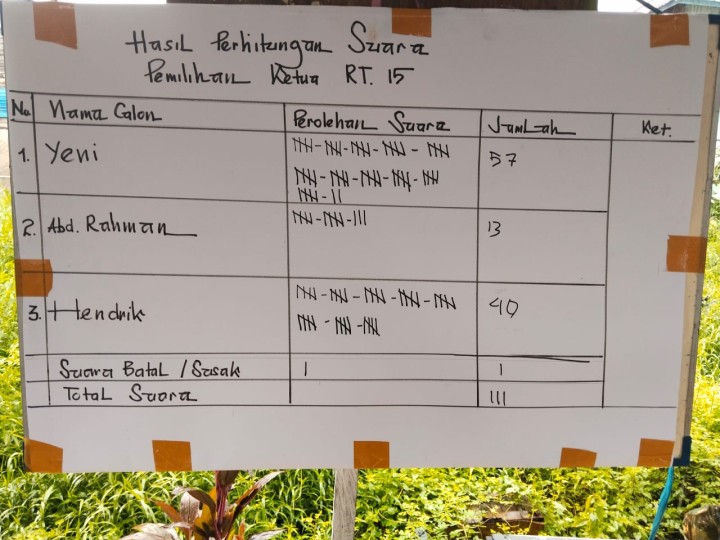 Hasil Perhitungan Suara
Pemilihan Ketua RT. 15
No Nama Calon Perolehan Suara Jumlah Ket.
1. Yeni 57
2. Abd. Rahman 13
3. Hendrik 40
Suara Batal / Susak 1 1
Total Suara 111